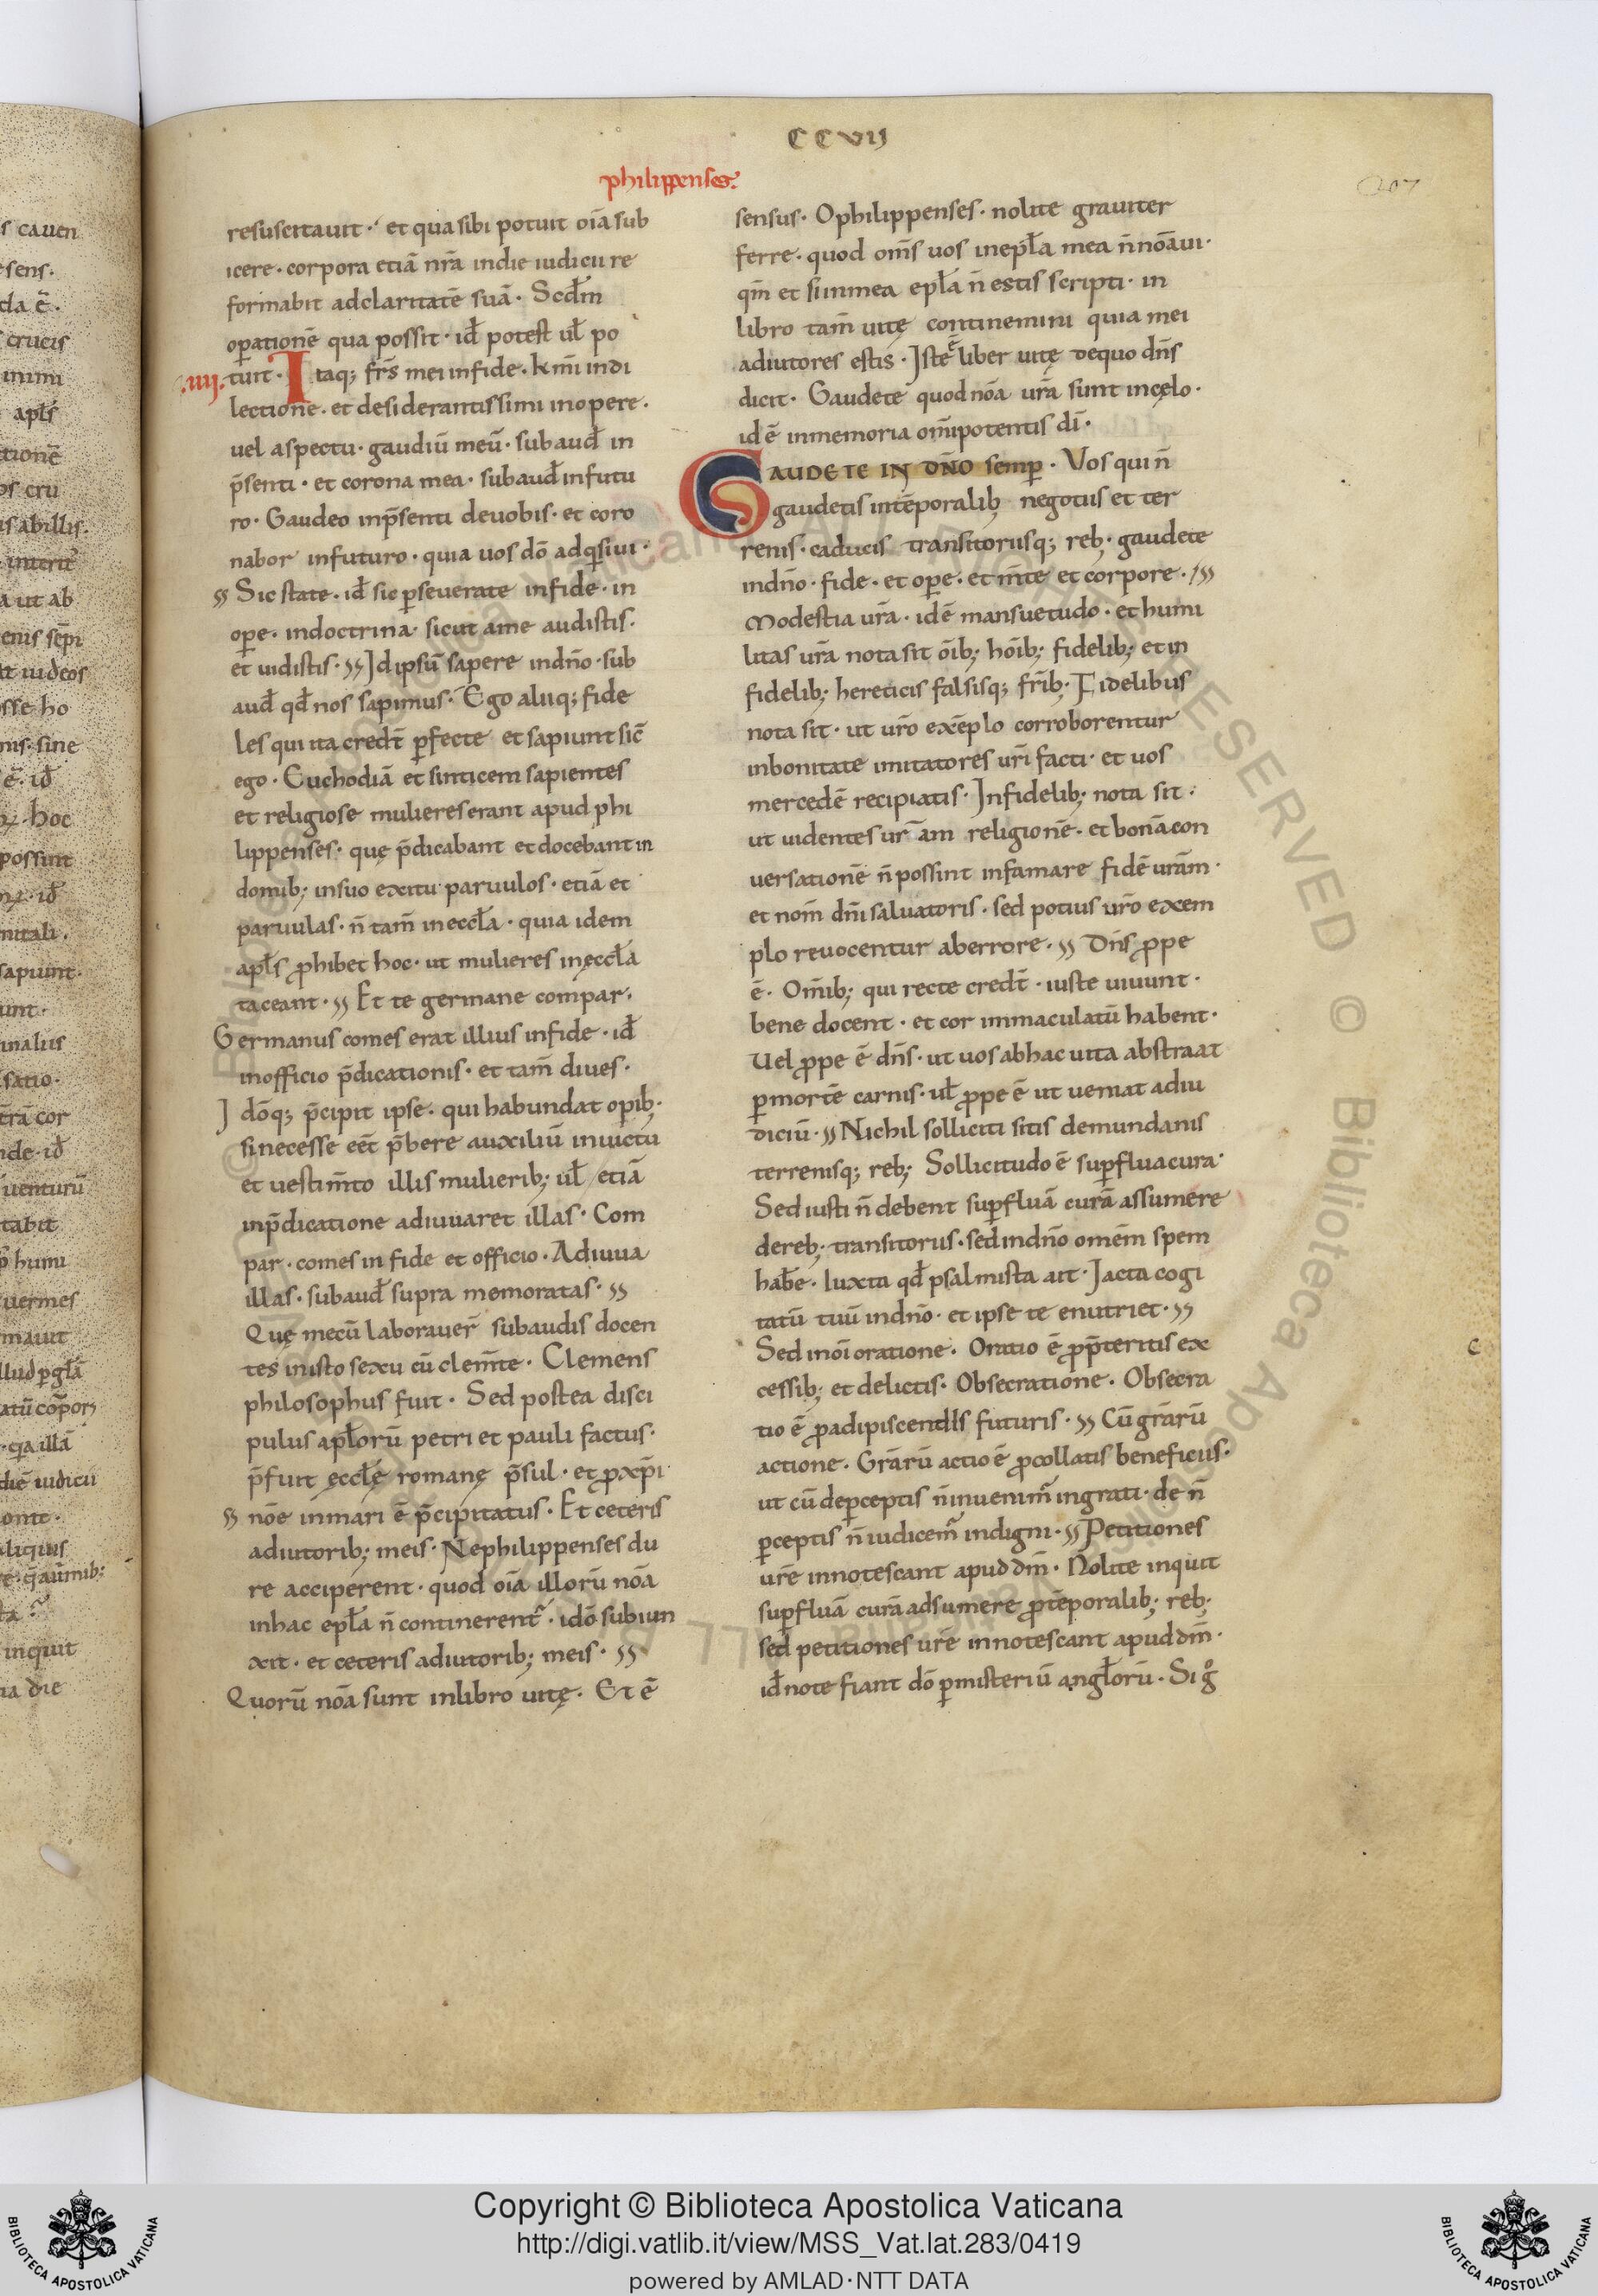 CCVIJ
207
philippenses.
resuscitauit · et qua sibi potuit oīa sub
icere · corpora etiā nr̄a indie iudicii re
formabit adclaritatē suā · Scdm̄
oꝑationē qua possit · id̄ potest ul̄ po
.iiii. tuit · Itaq; fr̄s mei infide · km̄i indi
lectione · et desiderantissimi inopere ·
uel aspectu · gaudiū meū · subaud̄ in
p̄senti · et corona mea · subaud̄ infutu
ro · Gaudeo inp̄senti deuobis · et coro
nabor infuturo · quia uos dō adq̄siui ·
Sic state · id̄ sic ꝑseuerate infide · in
oꝑe · indoctrina · sicut ame audistis ·
et uidistis · Idipsū sapere indn̄o · sub
aud̄ qd̄ nos sapimus · Ego aliiq; fide
les qui ita credt̄ ꝑfecte et sapiunt sic̄
ego · Euchodiā et sinticem sapientes
et religiose mulieres erant apud phi
lippenses · quę p̄dicabant et docebant in
domib; insuo exitu paruulos · etiā et
paruulas · n̄ tam̄ ineccl̄a · quia idem
apl̄s ꝓhibet hoc · ut mulieres inęccl̄a
taceant · Et te germane compar ·
Germanus comes erat illius infide · id̄
inofficio p̄dicationis · et tam̄ diues ·
Idōq; p̄cipit ipse · qui habundat opib; ·
si necesse eēt p̄bere auxiliū inuictu
et uestim̄to illis mulierib; ul̄ etiā
inp̄dicatione adiuuaret illas · Com
par · comes in fide et officio · Adiuua
illas · subaud̄ supra memoratas ·
Quę mecū laborauer̄ subaudis docen
tes insto sexu cū clem̄te · Clemens
philosophus fuit · Sed postea disci
pulus apl̄orū petri et pauli factus ·
p̄fuit ęccl̄ę romanę p̄sul · et ꝓ xp̄i
nōe inmari ē p̄cipitatus · Et ceteris
adiutorib; meis · Ne philippenses du
re acciperent · quod oīa illorū nōa
inhac epl̄a n̄ continerent᷑ · idō subiun
xit · et ceteris adiutorib; meis ·
Quorū nōa sunt inlibro uitę · Et ē
sensus · O philippenses · nolite grauiter
ferre · quod om̄s uos inepl̄a mea n̄ nōaui ·
qm̄ et si inmea epl̄a n̄ estis scripti · in
libro tam̄ uitę continemini quia mei
adiutores estis · Iste ē liber uitę dequo dn̄s
dicit · Gaudete quod nōa ur̄a sunt incęlo ·
id ē inmemoria om̄ipotentis dī ·
GAUDETE IN DN̄O semꝑ · Vos qui n̄
gaudetis intēporalib; negotiis et ter
renis · caducis transitoriisq; reb; · gaudete
indn̄o · fide · et oꝑe · et m̄te et corpore ·
Modestia ur̄a · id ē mansuetudo · et humi
litas ur̄a nota sit ōib; hōib; fidelib; et in
fidelib; hereticis falsisq; fr̄ib; · Fidelibus
nota sit · ut ur̄o exēplo corroborentur
inbonitate imitatores ur̄i facti · et uos
mercedē recipiatis · Infidelib; nota sit ·
ut uidentes ur̄am religionē · et bonā con
uersationē n̄ possint infamare fidē urām ·
et nom̄ dn̄i saluatoris · sed potius ur̄o exem
plo reuocentur aberrore · Dn̄s ꝓpe
ē · Om̄ib; qui recte credt̄ · iuste uiuunt ·
bene docent · et cor immaculatū habent ·
Uel ꝓpe ē dn̄s · ut uos abhac uita abstraat
ꝑ mortē carnis · ul̄ ꝓpe ē ut ueniat adiu
diciū · Nichil solliciti sitis demundanis
terrenisq; reb; Sollicitudo ē suꝑflua cura ·
Sed iusti n̄ debent suꝑfluā curā assumere
dereb; transitoriis · sed indn̄o omēm spem
hab̄e · Iuxta qd̄ psalmista ait · Iacta cogi
tatū tuū indn̄o · et ipse te enutriet ·
Sed inōi oratione · Oratio ē ꝓ p̄teritis ex
cessib; et delictis · Obsecratione · Obsecra
tio ē ꝓ adipiscendis futuris · Cū gr̄arū
actione · Gr̄arū actio ē ꝓ collatis beneficiis ·
ut cū deꝑceptis n̄ inuenim᷑ ingrati · de n̄
ꝑceptis n̄ iudicem᷑ indigni · Petitiones
ur̄e innotescant apud dm̄ · Nolite inquit
suꝑfluā curā adsumere ꝓ tēporalib; reb;
sed petitiones ur̄e innotescant apud dm̄ ·
id̄ note fiant dō ꝑ misteriū angl̄orū · Si gͦ
Copyright © Biblioteca Apostolica Vaticana
http://digi.vatlib.it/view/MSS_Vat.lat.283/0419
powered by AMLAD·NTT DATA
BIBLIOTECA APOSTOLICA VATICANA
BIBLIOTECA APOSTOLICA VATICANA